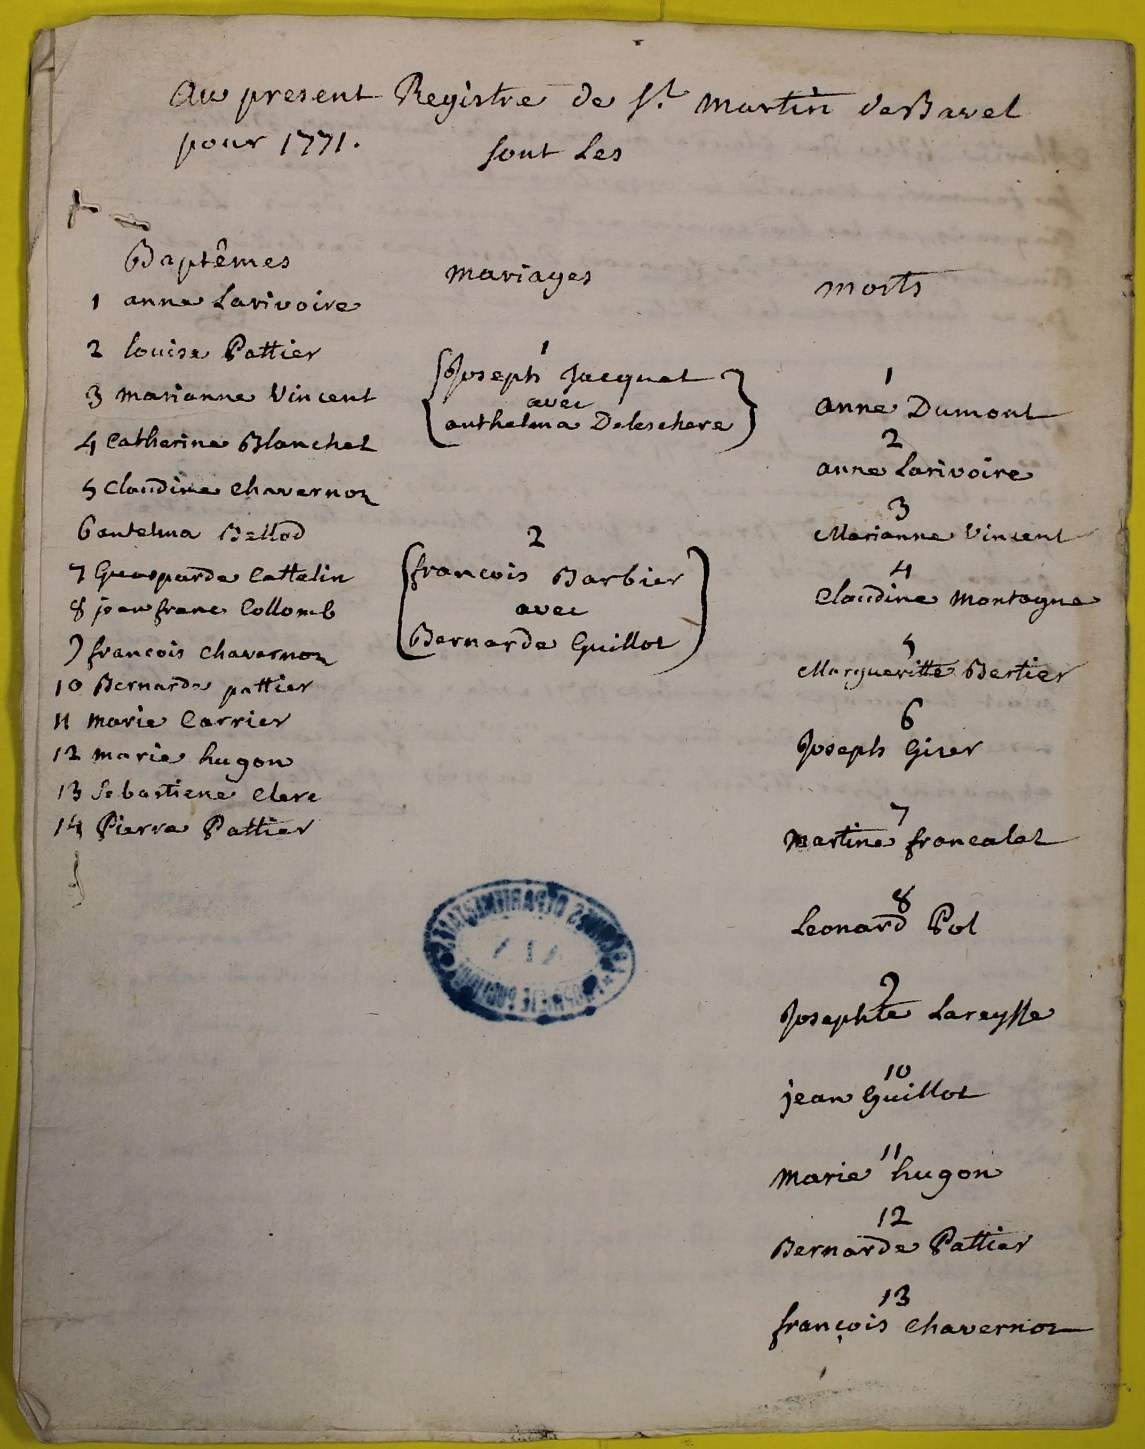 Au present Registre de St. martin de Bavel
pour 1771.
sont Les
Baptêmes
1 anne Larivoire
2 louise Pattier
3 marianne Vincent
4 Catherine Blanchet
5 Claudine Chavernoz
6 antelma Bellod
7 Gueasparde Cattelin
8 jean franc Collomb
9 francois Chavernoz
10 Bernarde pattier
11 marie Carrier
12 marie hugon
13 Sebastiene Clerc
14 Pierre Pattier
mariages
1
Joseph Jacquet
avec
anthelma Deleschere
2
francois Barbier
avec
Bernarde Guillot
morts
1
anne Dumont
2
anne Larivoire
3
Marianne Vincent
4
Claudine Montagne
5
Margueritte Bertier
6
Joseph Girer
7
martine francalet
8
Leonard Pol
9
Josephte Lareysse
10
jean Guillot
11
marie hugon
12
Bernarde Pattier
13
françois Chavernoz